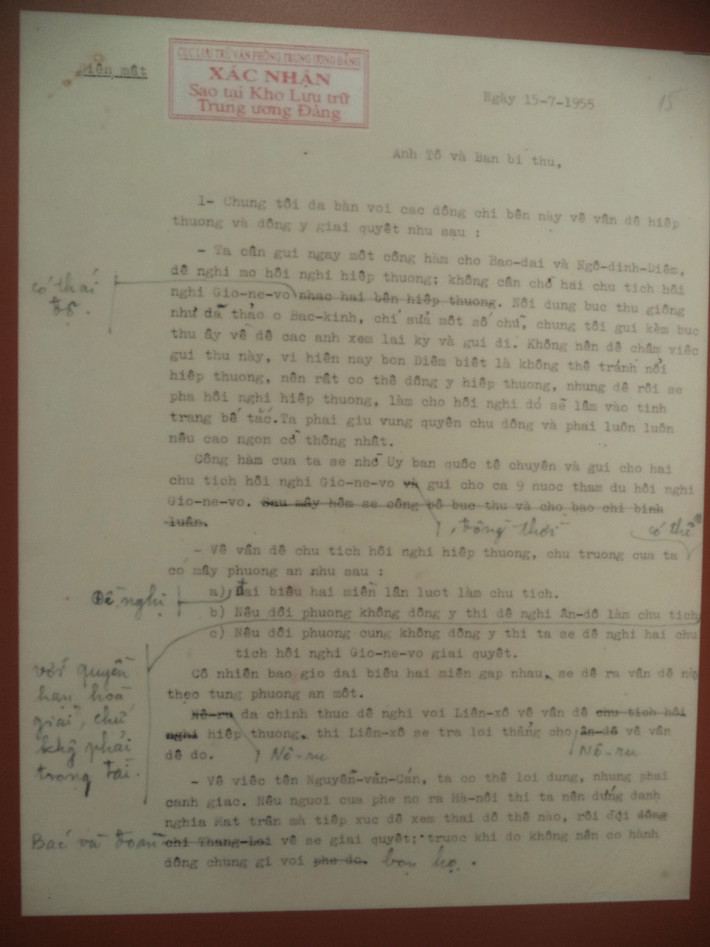 Điện mật
CỤC LƯU TRỮ VĂN PHÒNG TRUNG ƯƠNG ĐẢNG
XÁC NHẬN
Sao tại Kho Lưu trữ
Trung ương Đảng
Ngày 15-7-1955
15
Anh Tô và Ban bí thu,
1- Chung tôi da bàn voi cac dông chi bên này vê vân dê hiêp
thuong và dông y giai quyêt nhu sau :
- Ta cân gui ngay môt công hàm cho Bao-dai và Ngô-dinh-Diêm,
dê nghi mo hôi nghi hiêp thuong; không cân chơ hai chu tich hôi
nghi Gio-ne-vo nhac hai bên hiêp thuong. Nôi dung buc thu giông
như dã thảo o Bac-kinh, chỉ sửa môt sô chữ, chung tôi gui kèm buc
thu ây vê dê cac anh xem lai ky và gui di. Không nên dê châm viêc
gui thu này, vi hiên nay bon Diêm biêt là không thê tránh nôi
hiêp thuong, nên rât co thê dông y hiêp thuong, nhung dê rôi se
pha hôi nghi hiêp thuong, làm cho hôi nghi dó sẽ lâm vào tinh
trang bê tắc.Ta phai giu vung quyên chu dông và phai luôn luôn
nêu cao ngon cờ thông nhât.
có thái
độ.
Công hàm cua ta se nhờ Uy ban quôc tê chuyên và gui cho hai
chu tich hôi nghi Gio-ne-vo và gui cho ca 9 nuoc tham du hôi nghi
Gio-ne-vo. Sau mây hôm se công bô buc thu và cho bao chi binh
luân.
, đồng thời
có thể
- Vê vân dê chu tich hôi nghi hiêp thuong, chu truong cua ta
có mây phuong an nhu sau :
Đề nghị
a) Đai biêu hai miên lân luot làm chu tich.
b) Nêu dôi phuong không dông y thi dê nghi Ân-dô làm chu tich
c) Nêu dôi phuong cung không dông y thi ta se dê nghi hai chu
tich hôi nghi Gio-ne-vo giai quyêt.
với quyền
hạn hoà
giải, chứ
khg phải
trọng tài.
Cô nhiên bao gio dai biêu hai miên gap nhau, se dê ra vân dê nò
theo tung phuong an môt.
Nê-ru da chinh thuc dê nghi voi Liên-xô vê vân dê chu tich hôi
nghi hiêp thuong, thi Liên-xô se tra loi thẳng cho Ân-dô vê vân
dê do.
Nê-ru
Nê-ru
- Vê viêc tên Nguyễn-văn-Cán, ta co thê loi dung, nhung phai
canh giac. Nêu nguoi cua phe no ra Hà-nôi thi ta nên dứng danh
nghia Mat trân mà tiêp xuc dê xem thai dô thê nào, rôi đợi dông
chi Thang-Loi vê se giai quyêt; truoc khi do không nên co hành
dông chung gi voi phe do. bọn họ.
Bác và đoàn